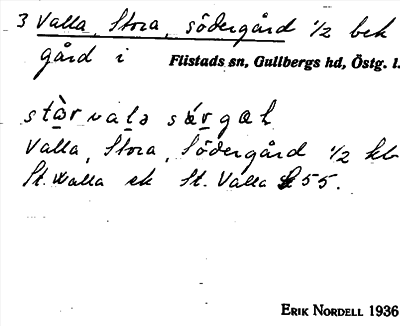 3 Valla, Stora, södergård 1/2 bek
gård i Flistads sn, Gullbergs hd, Östg. l.
stàrvalə sǽrgaḷ
Valla, Stora, Södergård 1/2 kb
St. Walla ek St. Valla 55.
ERIK NORDELL 1936